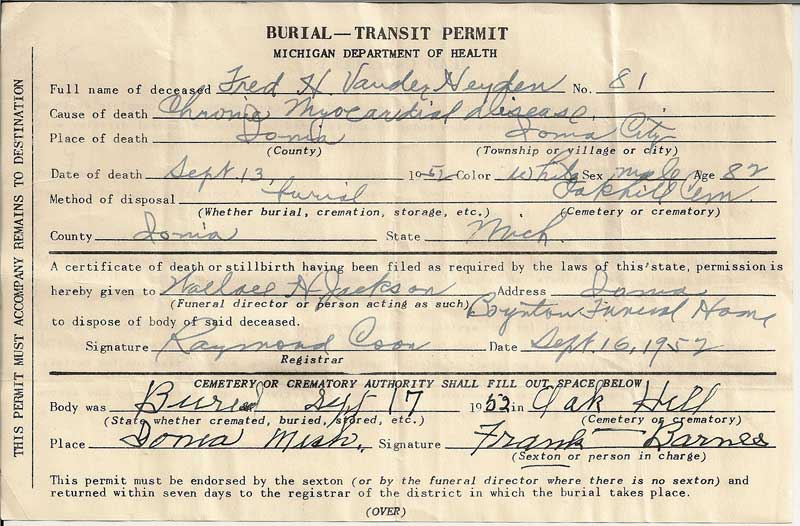 BURIAL—TRANSIT PERMIT
MICHIGAN DEPARTMENT OF HEALTH
THIS PERMIT MUST ACCOMPANY REMAINS TO DESTINATION
Full name of deceased Fred H. Vander Heyden No. 81
Cause of death Chronic Myocardial disease.
Place of death Ionia Ionia City
(County) (Township or village or city)
Date of death Sept 13, 1952 Color White Sex male Age 82
Method of disposal burial Oakhill Cem.
(Whether burial, cremation, storage, etc.) (Cemetery or crematory)
County Ionia State Mich.
A certificate of death or stillbirth having been filed as required by the laws of this state, permission is
hereby given to Wallace H. Jackson Address Ionia
(Funeral director or person acting as such) Boynton Funeral Home
to dispose of body of said deceased.
Signature Raymond Coon Date Sept. 16, 1952
Registrar
CEMETERY OR CREMATORY AUTHORITY SHALL FILL OUT SPACE BELOW
Body was Buried Sept 17 1952 in Oak Hill
(State whether cremated, buried, stored, etc.) (Cemetery or crematory)
Place Ionia Mich. Signature Frank Barnes
(Sexton or person in charge)
This permit must be endorsed by the sexton (or by the funeral director where there is no sexton) and
returned within seven days to the registrar of the district in which the burial takes place.
(OVER)